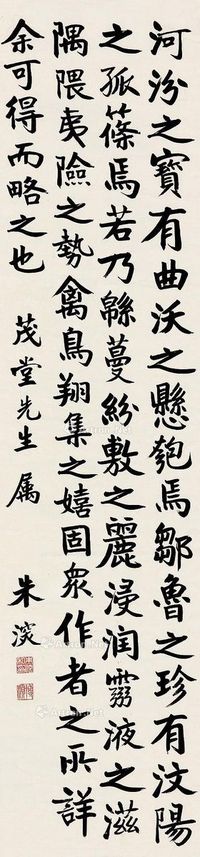 河汾之寶有曲沃之懸匏焉鄒魯之珍有汶陽
之孤篠焉若乃緜蔓紛敷之麗浸润靈液之滋
隅隈夷險之勢禽鳥翔集之嬉固衆作者之所詳
余可得而略之也
茂堂先生属
朱淡